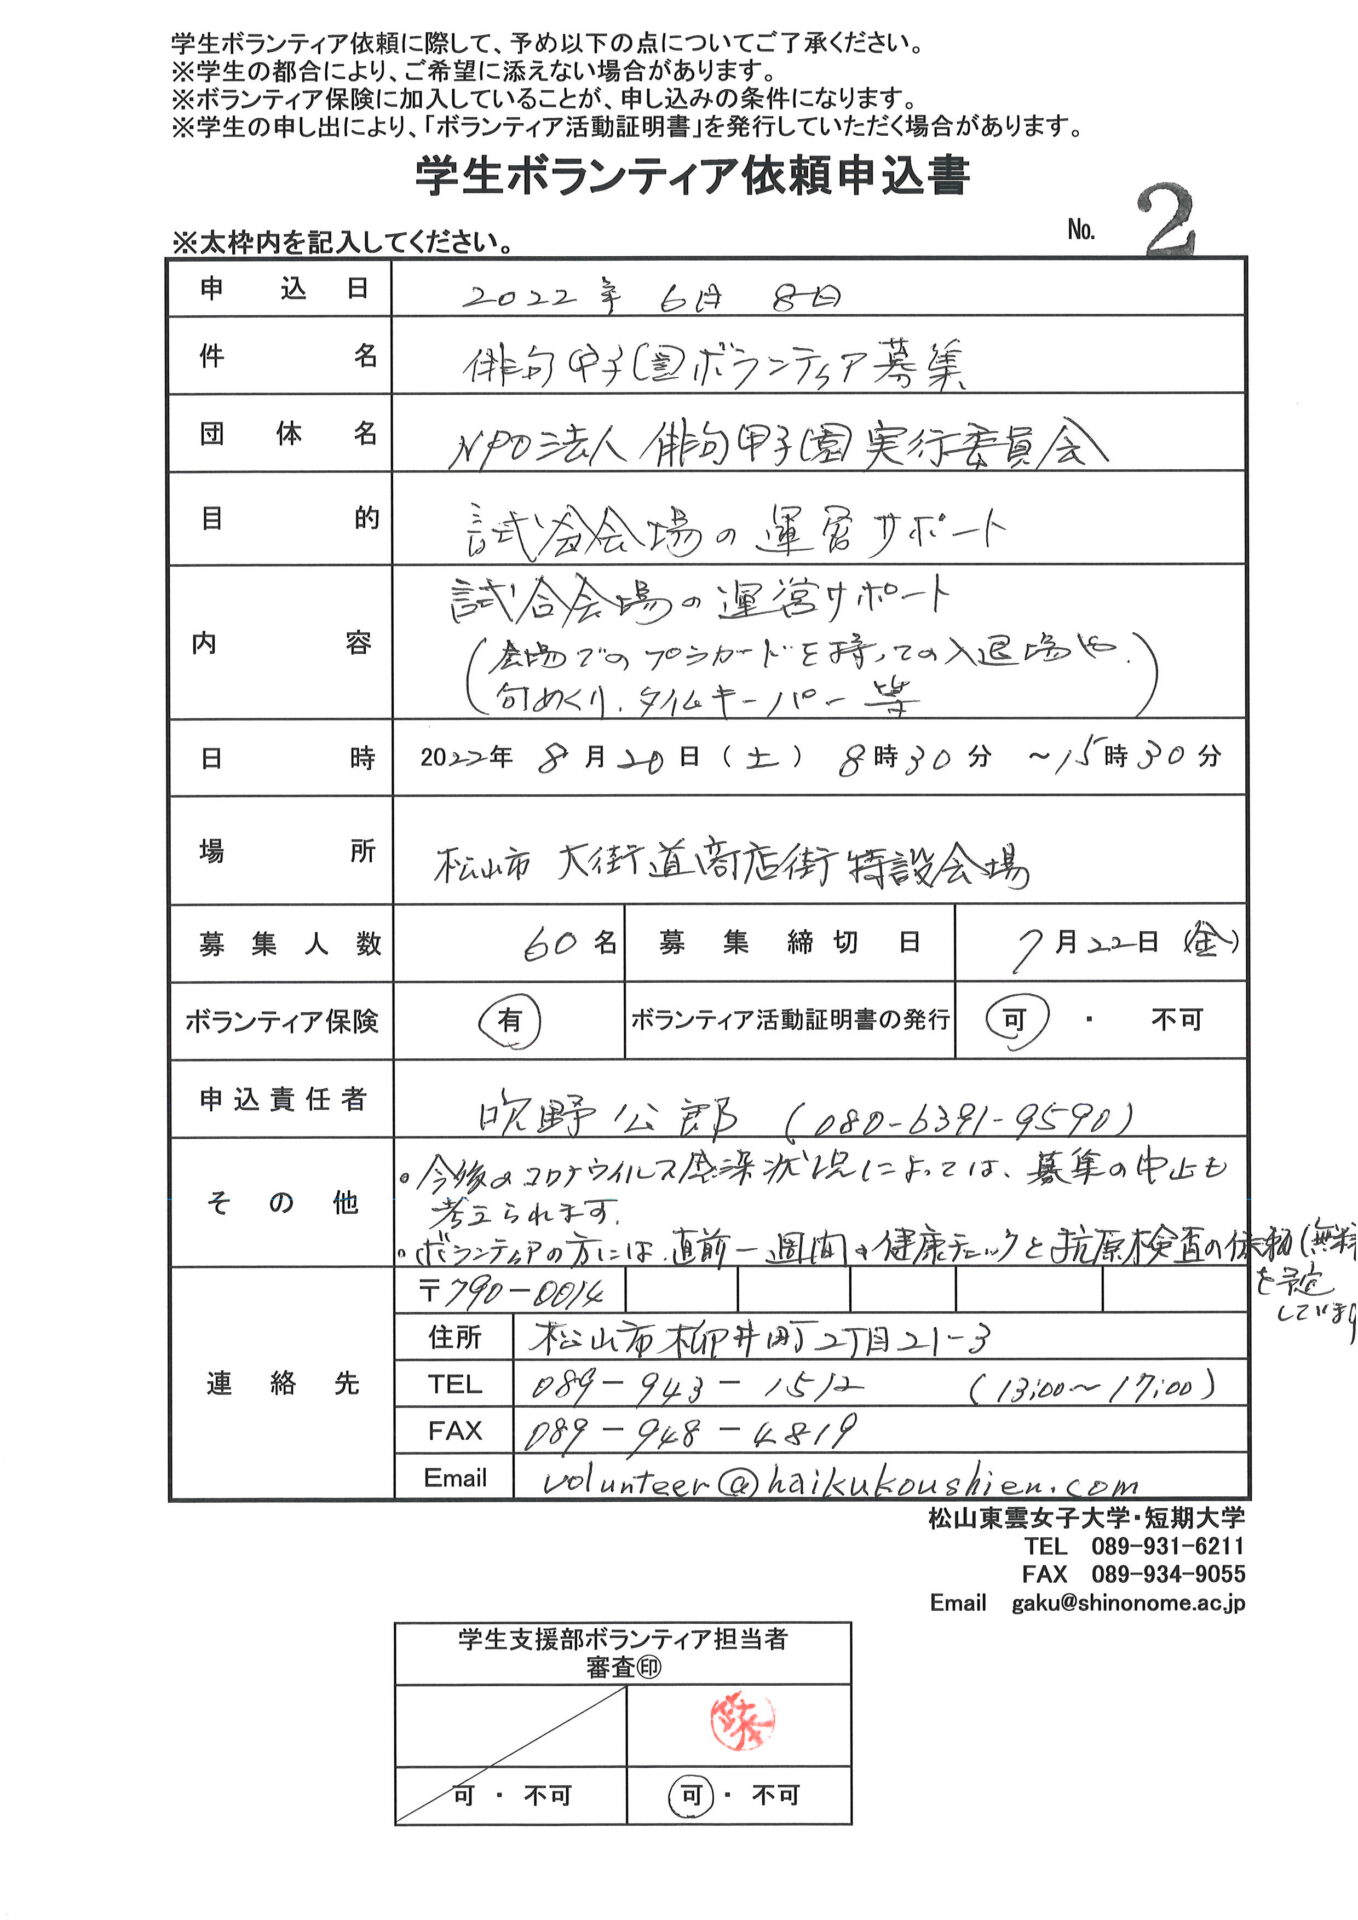 学生ボランティア依頼に際して、予め以下の点についてご了承ください。
※学生の都合により、ご希望に添えない場合があります。
※ボランティア保険に加入していることが、申し込みの条件になります。
※学生の申し出により、「ボランティア活動証明書」を発行していただく場合があります。
学生ボランティア依頼申込書
※太枠内を記入してください。 No. 2
申込日 2022年 6月 8日
件名 俳句甲子園ボランティア募集
団体名 NPO法人 俳句甲子園実行委員会
目的 試合会場の運営サポート
内容 試合会場の運営サポート
(会場でのプラカードを持っての入退場や、
句めくり、タイムキーパー等)
日時 2022年 8月20日(土) 8時30分 ~15時30分
場所 松山市 大街道商店街特設会場
募集人数 60名 募集締切日 7月22日(金)
ボランティア保険 有 ボランティア活動証明書の発行 可 ・ 不可
申込責任者 吹野公郎 (080-6391-9590)
その他 ・今後のコロナウイルス感染状況によっては、募集の中止も
考えられます。
・ボランティアの方には、直前一週間の健康チェックと抗原検査の依頼(無料
を予定
しています
連絡先 〒790-0014
住所 松山市柳井町2丁目21-3
TEL 089-943-1512 (13:00~17:00)
FAX 089-948-4819
Email volunteer@haikukoushien.com
松山東雲女子大学・短期大学
TEL 089-931-6211
FAX 089-934-9055
Email gaku@shinonome.ac.jp
学生支援部ボランティア担当者
審査㊞
可 ・ 不可 可 ・ 不可